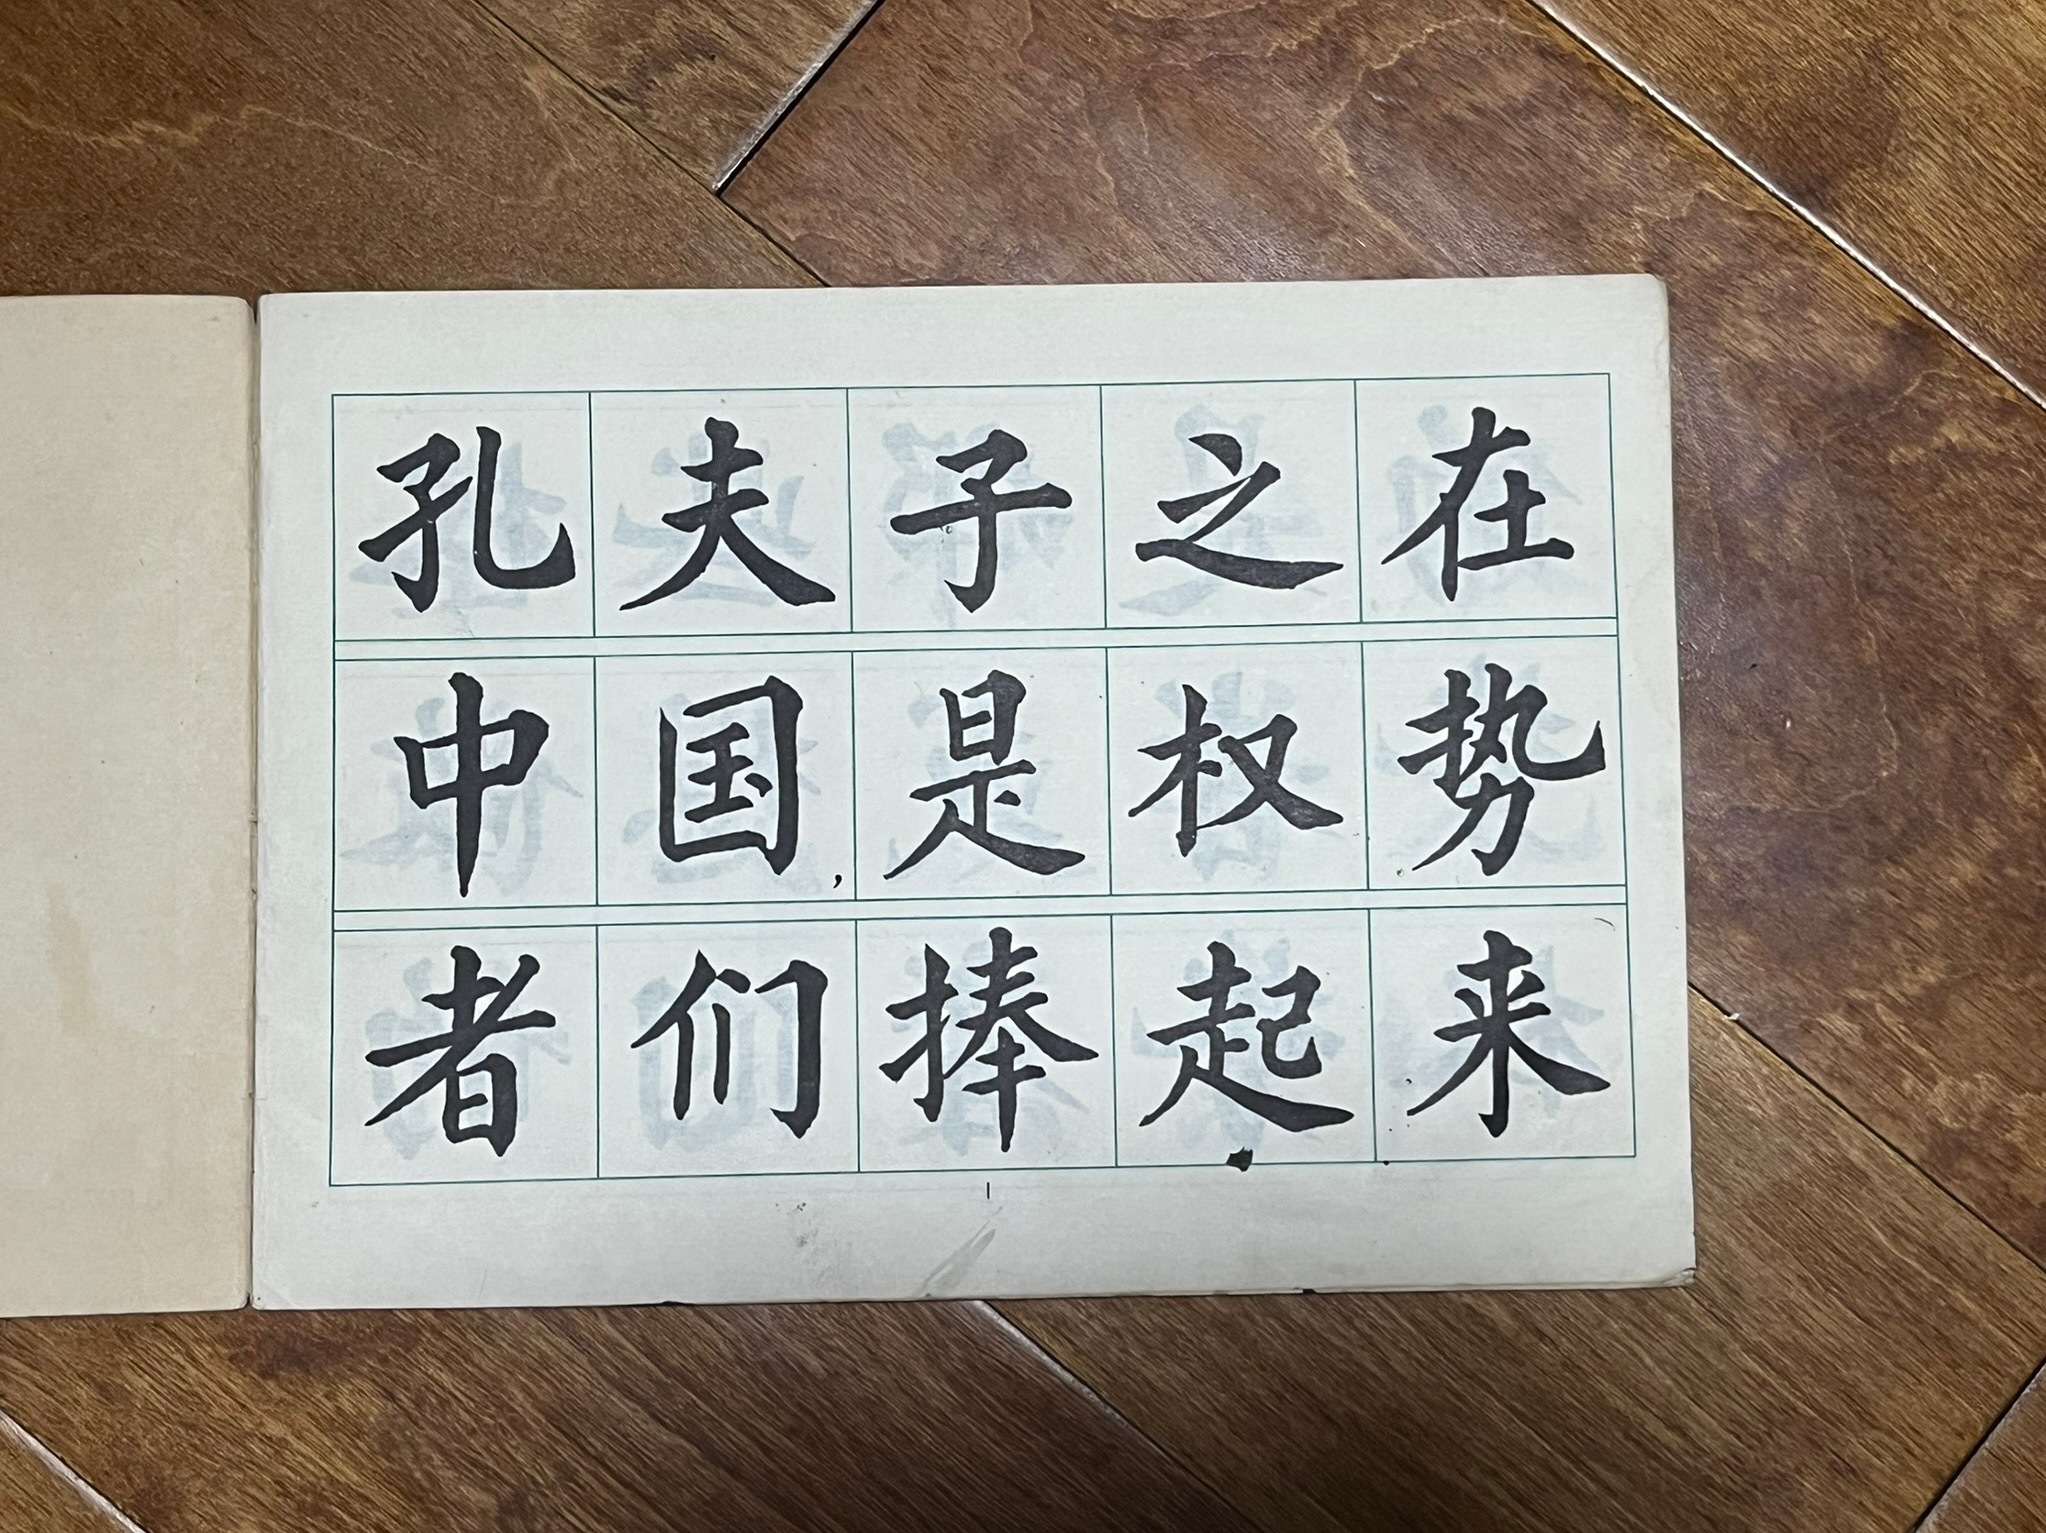 孔夫子之在
中国，是权势
者们捧起来
1